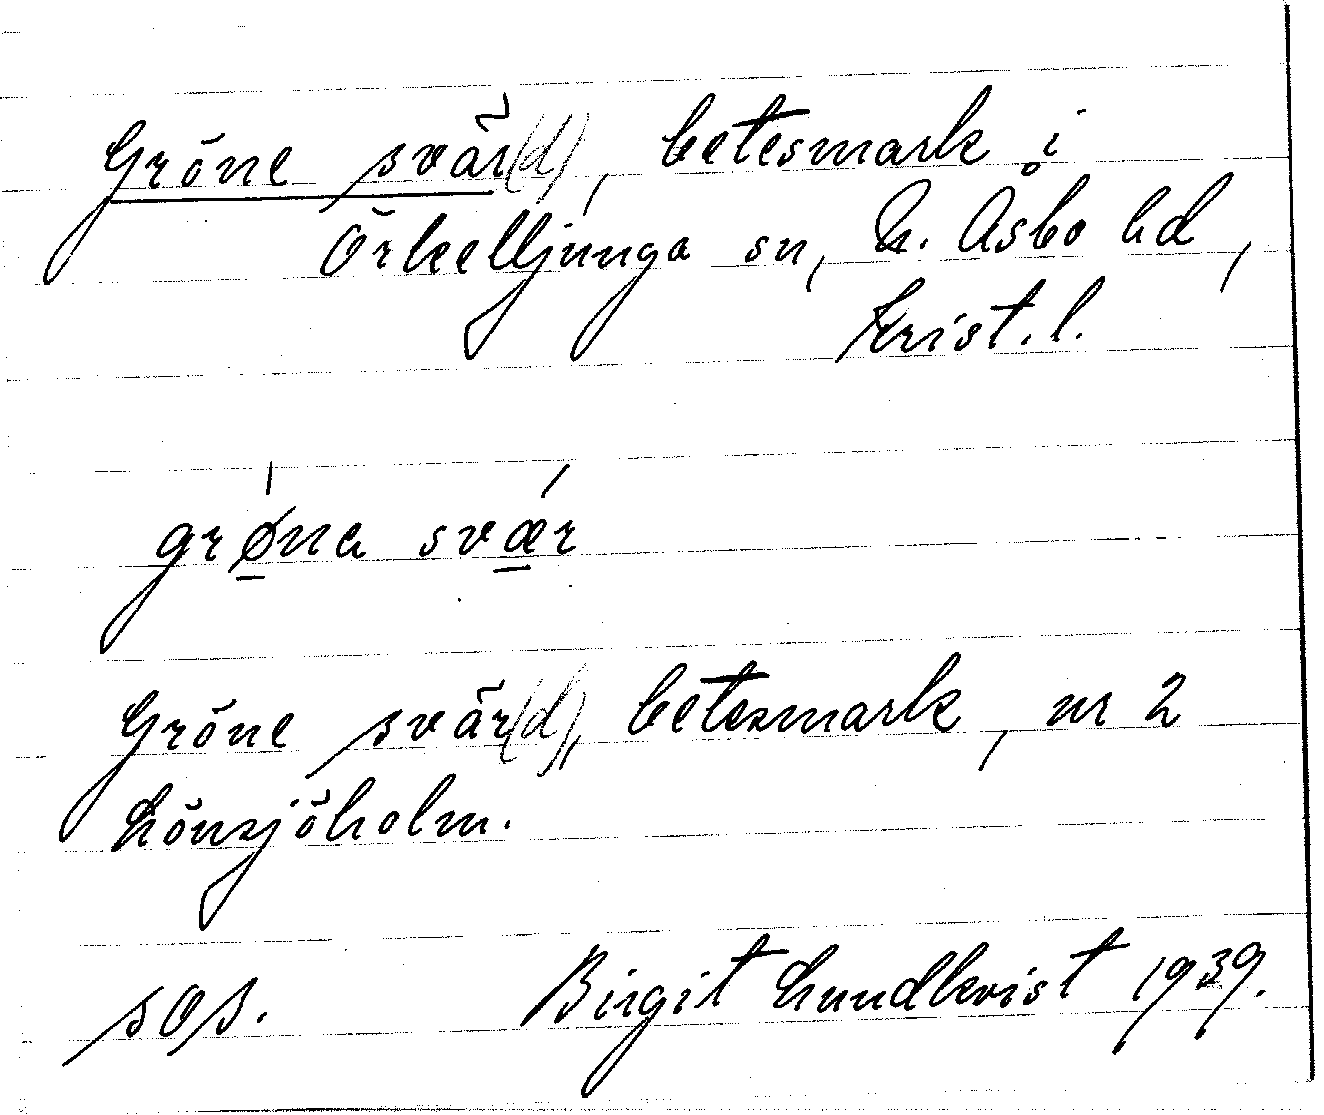 Gröne svär(d), betesmark i
Örkelljunga sn, N. Åsbo hd,
Krist. l.
grøna svær
Gröne svär(d), betesmark, nr 2
Lönsjöholm.
SOS. Birgit Lundkvist 1939.